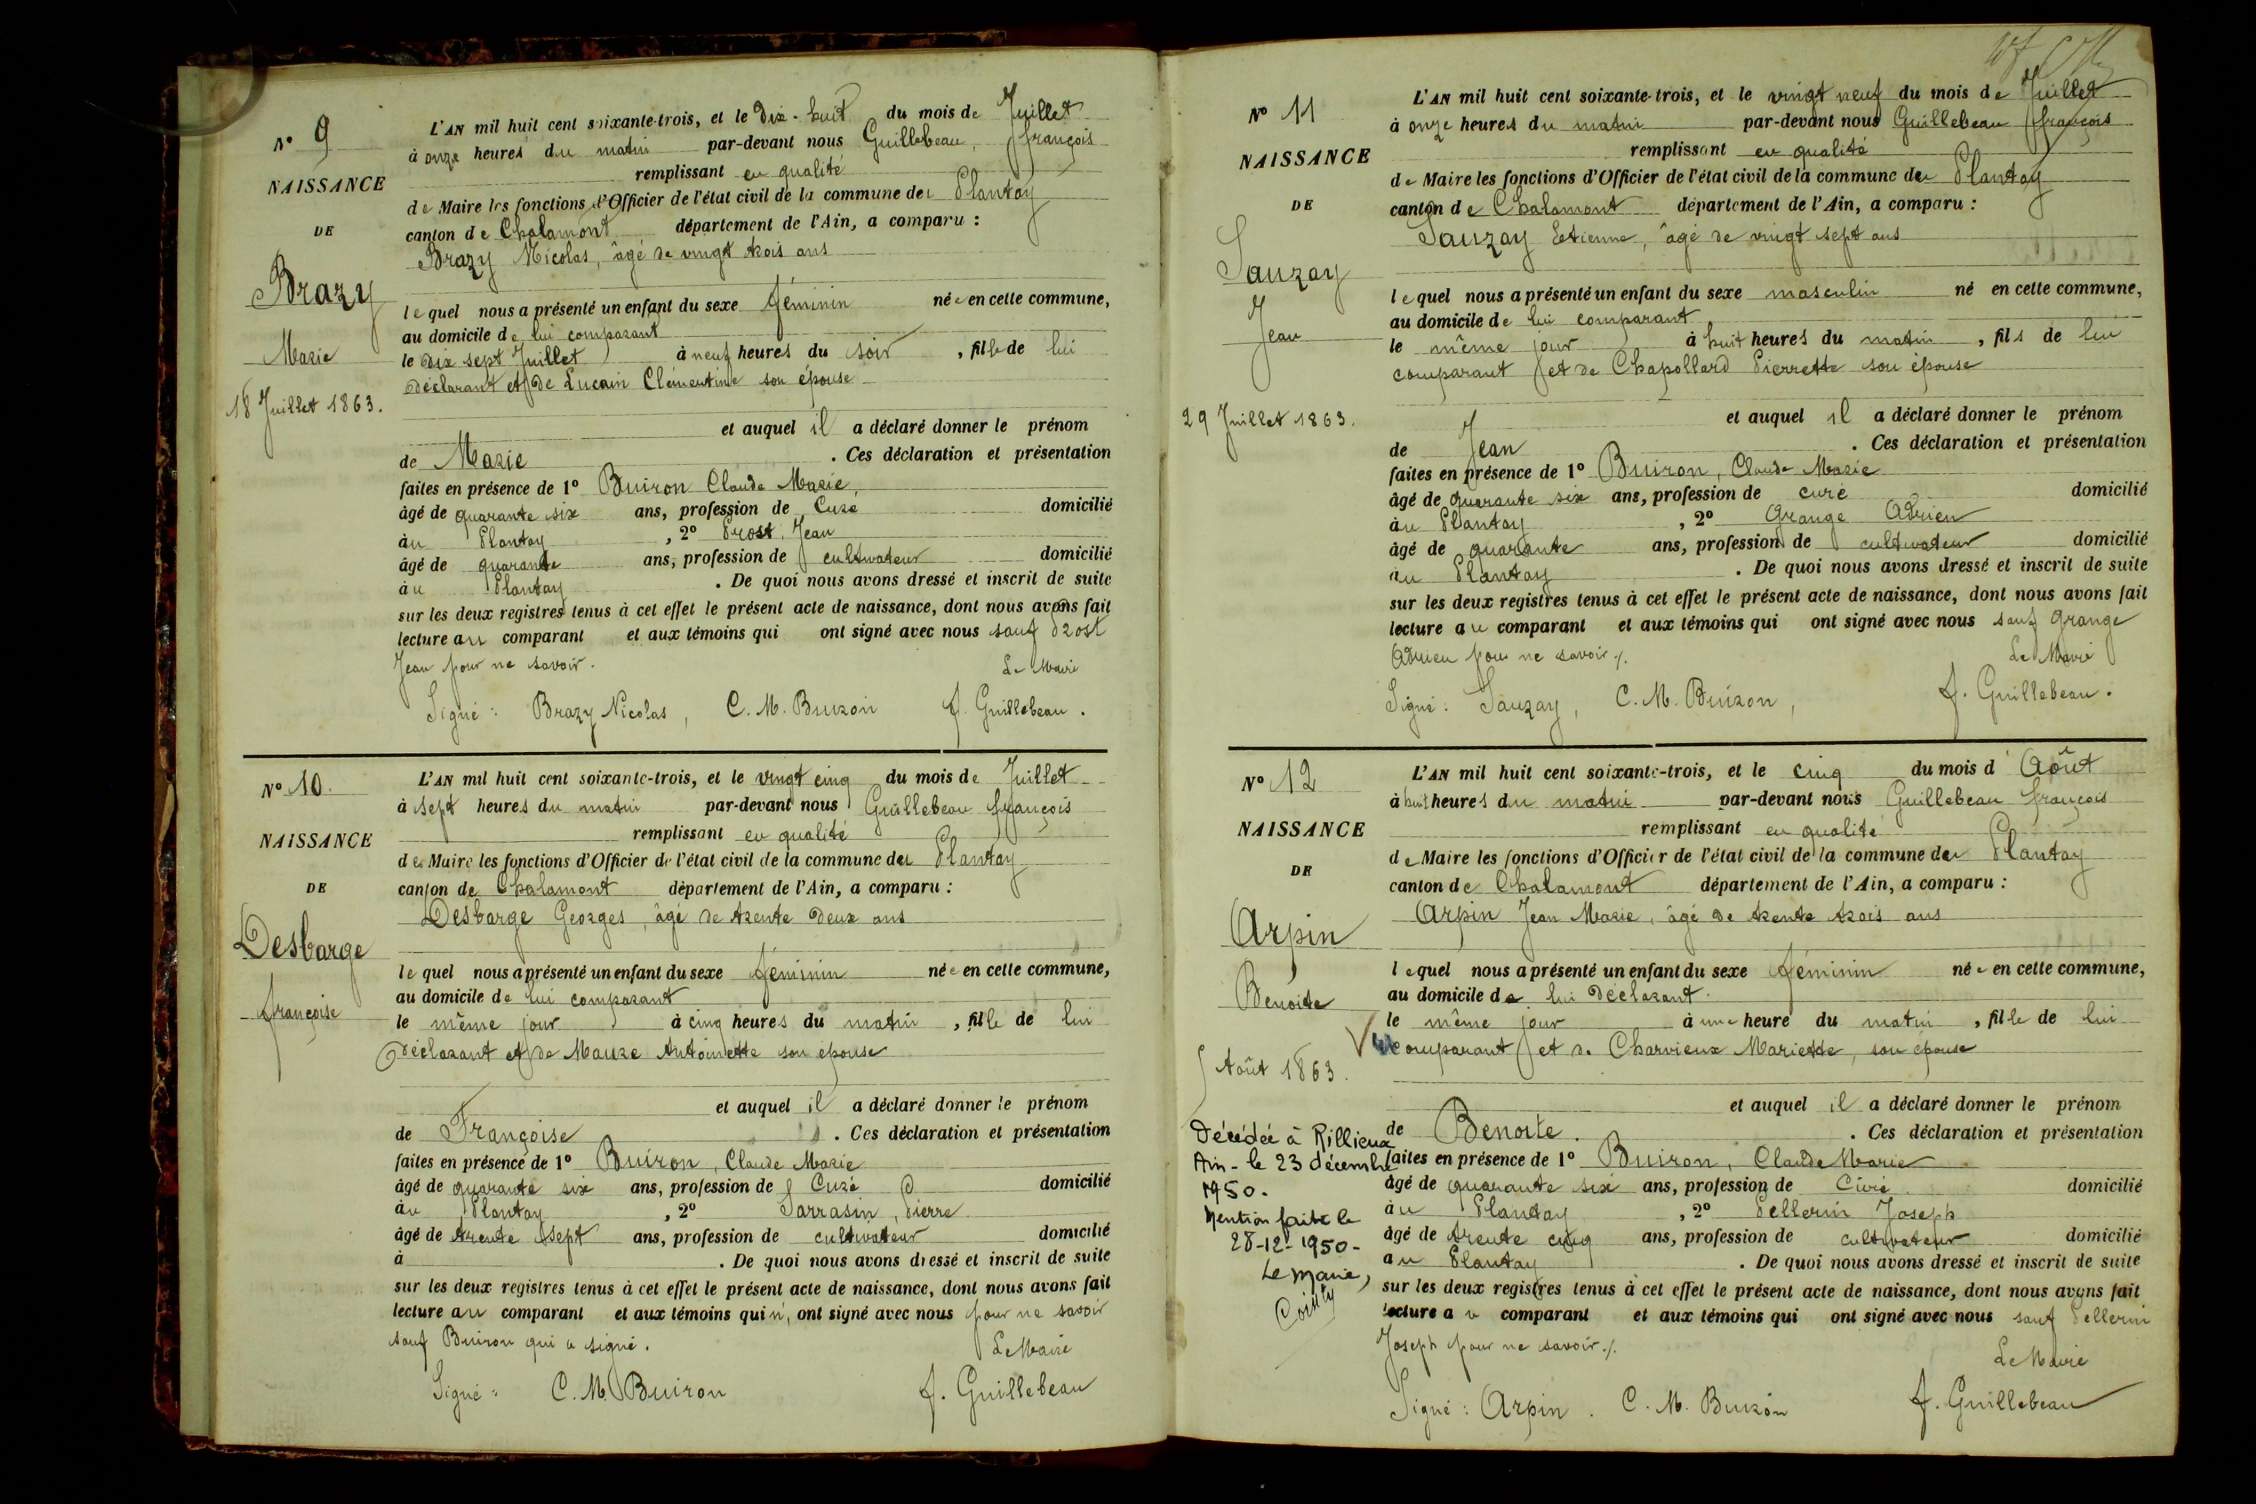 N° 9
NAISSANCE
DE
Brazy
Marie
18 Juillet 1863.
L'AN mil huit cent soixante-trois, et le Dix-huit du mois de Juillet
à onze heures du matin par-devant nous Guillebeau, françois
remplissant en qualité
de Maire les fonctions d'Officier de l'état civil de la commune du Plantay
canton de Chalamont département de l'Ain, a comparu :
Brazy Nicolas, âgé de vingt trois ans
lequel nous a présenté un enfant du sexe féminin née en cette commune,
au domicile de lui comparant
le dix sept Juillet à neuf heures du soir, fille de lui
déclarant et de Lucain Clémentine son épouse
et auquel il a déclaré donner le prénom
de Marie. Ces déclaration et présentation
faites en présence de 1° Buiron Claude Marie,
âgé de quarante six ans, profession de Curé domicilié
au Plantay, 2° Prost, Jean
âgé de quarante ans, profession de cultivateur domicilié
au Plantay. De quoi nous avons dressé et inscrit de suite
sur les deux registres tenus à cet effet le présent acte de naissance, dont nous avons fait
lecture au comparant et aux témoins qui ont signé avec nous sauf Prost
Jean pour ne savoir.
Le Maire
Signé : Brazy Nicolas, C. M. Buiron f. Guillebeau.
N° 10
NAISSANCE
DE
Desbarge
françoise
L'AN mil huit cent soixante-trois, et le vingt cinq du mois de Juillet
à sept heures du matin par-devant nous Guillebeau françois
remplissant en qualité
de Maire les fonctions d'Officier de l'état civil de la commune du Plantay
canton de Chalamont département de l'Ain, a comparu :
Desbarge Georges, âgé de trente deux ans
lequel nous a présenté un enfant du sexe féminin née en cette commune,
au domicile de lui comparant
le même jour à cinq heures du matin, fille de lui
déclarant et de Maure Antoinette son épouse
et auquel il a déclaré donner le prénom
de Françoise. Ces déclaration et présentation
faites en présence de 1° Buiron, Claude Marie
âgé de quarante six ans, profession de Curé domicilié
au Plantay, 2° Sarrasin, Pierre
âgé de trente sept ans, profession de cultivateur domicilié
à . De quoi nous avons dressé et inscrit de suite
sur les deux registres tenus à cet effet le présent acte de naissance, dont nous avons fait
lecture au comparant et aux témoins qui n'ont signé avec nous pour ne savoir
sauf Buiron qui a signé.
Le Maire
Signé : C. M. Buiron f. Guillebeau
N° 11
NAISSANCE
DE
Sauzay
Jean
29 Juillet 1863.
L'AN mil huit cent soixante-trois, et le vingt neuf du mois de Juillet
à onze heures du matin par-devant nous Guillebeau françois
remplissant en qualité
de Maire les fonctions d'Officier de l'état civil de la commune du Plantay
canton de Chalamont département de l'Ain, a comparu :
Sauzay Etienne, âgé de vingt sept ans
lequel nous a présenté un enfant du sexe masculin né en cette commune,
au domicile de lui comparant
le même jour à huit heures du matin, fils de lui
comparant et de Chapollard Pierrette son épouse
et auquel il a déclaré donner le prénom
de Jean. Ces déclaration et présentation
faites en présence de 1° Buiron, Claude Marie
âgé de quarante six ans, profession de curé domicilié
au Plantay, 2° Grange Adrien
âgé de quarante ans, profession de cultivateur domicilié
au Plantay. De quoi nous avons dressé et inscrit de suite
sur les deux registres tenus à cet effet le présent acte de naissance, dont nous avons fait
lecture au comparant et aux témoins qui ont signé avec nous sauf Grange
Adrien pour ne savoir ./.
Le Maire
Signé : Sauzay, C. M. Buiron, f. Guillebeau.
N° 12
NAISSANCE
DE
Arpin
Benoite
5 Août 1863.
Décédée à Rillieux
Ain - le 23 décembre
1950.
Mention faite le
28-12-1950-
Le Maire,
L'AN mil huit cent soixante-trois, et le cinq du mois d'Août
à huit heures du matin par-devant nous Guillebeau françois
remplissant en qualité
de Maire les fonctions d'Officier de l'état civil de la commune du Plantay
canton de Chalamont département de l'Ain, a comparu :
Arpin Jean Marie, âgé de trente trois ans
lequel nous a présenté un enfant du sexe féminin née en cette commune,
au domicile de lui déclarant.
le même jour à une heure du matin, fille de lui
comparant et de Charvieux Mariette, son épouse
et auquel il a déclaré donner le prénom
de Benoite. Ces déclaration et présentation
faites en présence de 1° Buiron, Claude Marie
âgé de quarante six ans, profession de Curé domicilié
au Plantay, 2° Pellerin Joseph
âgé de trente cinq ans, profession de cultivateur domicilié
au Plantay. De quoi nous avons dressé et inscrit de suite
sur les deux registres tenus à cet effet le présent acte de naissance, dont nous avons fait
lecture au comparant et aux témoins qui ont signé avec nous sauf Pellerin
Joseph pour ne savoir ./.
Le Maire
Signé : Arpin. C. M. Buiron f. Guillebeau